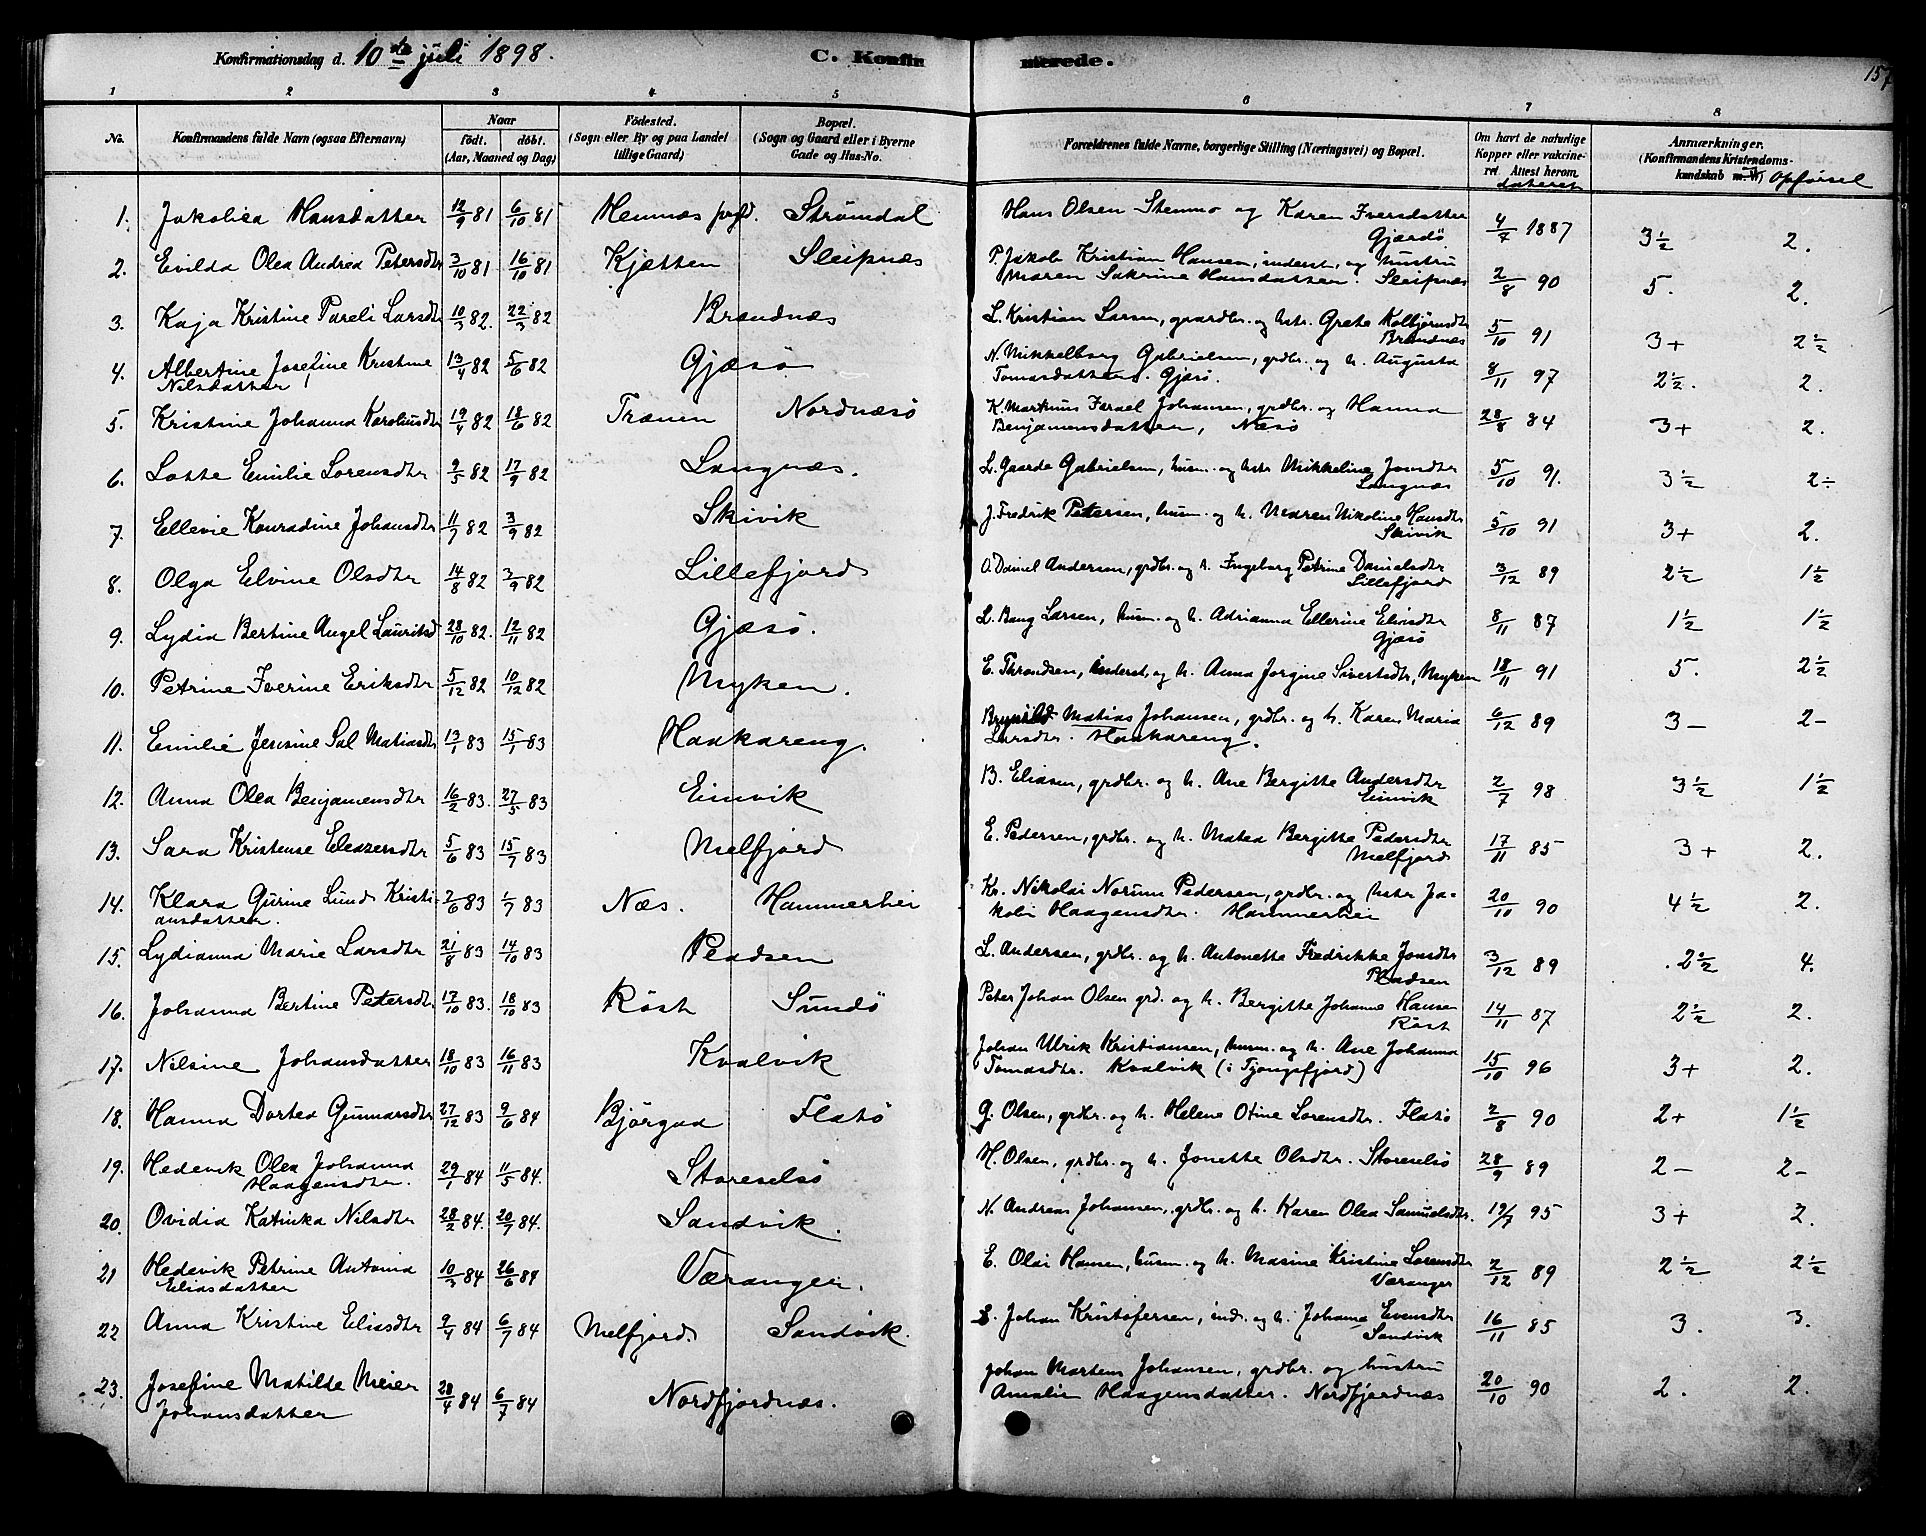 Konfirmationsdag d. 10de juli 1898. C. Konfirmerede. 157
1 2 3 4 5 6 7 8
No. Konfirmandens fulde Navn (ogsaa Efternavn) Naar födt. döbt. (Aar, Maaned og Dag) Födested. (Sogn eller By og paa Landet tillige Gaard) Bopæl. (Sogn og Gaard eller i Byerne Gade og Hus-No. Forældrenes fulde Navne, borgerlige Stilling (Næringsvei) og Bopæl. Om havt de naturlige Kopper eller vakcineret. Attest herom dateret Anmærkninger. (Konfirmandens Kristendomskundskab m. V.) Opförsel
1. Jakobea Hansdatter 12/9 81 6/10 81 Hemnæs prgld. Strömdal Hans Olsen Stenmo og Karen Iversdatter Gjærdö 4/7 1887 3½ 2.
2. Evilda Olea Andrea Petersdtr 3/10 81 16/10 81 Kjætten Sleipnæs P. Jakob Kristian Hansen, inderst, og hustru Maren Sakrine Hansdatter. Sleipnæs 2/8 90 5. 2.
3. Kaja Kristine Pareli Larsdtr 10/3 82. 22/3 82 Brændnæs L. Kristian Larsen, gaardbr. og hstr. Grete Kolbjörnsdtr Brændnæs 5/10 91 3+ 2½
4. Albertine Josefine Kristine Nilsdatter 13/4 82 5/6 82 Gjæsö N. Mikkelborg Gabrielsen, grdbr. og h. Augusta Tomasdatter. Gjæsö. 8/11 97 2½. 2.
5. Kristine Johanna Karoliusdtr 19/4 82 18/6 82 Trænen Nordnæsö K. Markus Israel Johansen, grdbr. og Hanna Benjamensdatter, Næsö 28/8 84 3+ 2.
6. Lotte Emilie Lorensdtr 9/5 82 17/9 82 Langnæs. L. Gaarde Gabrielsen, husm. og hstr Mikkeline Jonsdtr Langnæs 5/10 91. 3½ 2÷
7. Ellevie Konradine Johansdtr 11/7 82 3/9 82 Skivik J. Fredrik Petersen, husm. og h. Maren Nikoline Hansdtr Skivik 5/10 91 3+ 2.
8. Olga Elvine Olsdtr 14/8 82 3/9 82 Lillefjord O. Daniel Andersen, grdbr. og h. Ingeborg Petrine Danielsdtr Lillefjord 3/12 89 2½ 1½
9. Lydia Bertine Angel Lauritsd 28/10 82. 12/11 82 Gjæsö. L. Bang Larsen, husm. og h. Adrianna Ellerine Elvisdtr Gjæsö 8/11 87 1½ 1½
10. Petrine Iverine Eriksdtr 5/12 82 10/12 82 Myken. E. Throndsen, inderst, og h. Anna Jorgine Sivertsdtr, Myken 18/11 91 5. 2½
11. Emilie Jensine Sal Matiasdtr 13/1 83 15/1 83 Haakareng. Matias Johansen, grdbr. og h. Karen Maria Larsdtr. Haakareng. 6/12 89 3- 2-
12. Anna Olea Benjamensdtr 16/2 83. 27/5 83 Eimvik B. Eliasen, grdbr. og h. Ane Bergitte Andersdtr Eimvik 2/7 98 3½ 1½
13. Sara Kristense Eleasersdtr 5/6 83 15/7 83 Melfjord E. Pedersen, grdbr. og h. Matea Bergitte Pedersdtr Melfjord 17/11 85 3+ 2.
14. Klara Gurine Lund Kristiansdatter. 2/6 83 1/7 83 Næs. Hammerhei Kr. Nikolai Norum Pedersen, grdbr. og hstr Jakobi Haagensdtr. Hammerhei 20/10 90 4½ 2.
15. Lydianna Marie Larsdtr 21/8 83 14/10 83 Pladsen L. Andersen, grdbr. og h. Antonette Fredrikke Jonsdtr Pladsen 3/12 89 2½ 4.
16. Johanna Bertine Petersdtr 17/10 83. 18/10 83 Röst Sundö Peter Johan Olsen grd. og h. Bergitte Johanne Hansen Röst 14/11 87 2½ 2.
17. Nilsine Johansdatter 18/10 83 16/11 83 Kvalvik Johan Ulrik Kristiansen, husm. og h. Ane Johanna Tomasdtr. Kvalvik (i Tjongsfjord) 15/10 96 3+ 2.
18. Hanna Dortea Gunnarsdtr 27/12 83 9/6 84 Bjærgaa Flatö G. Olsen, grdbr. og h. Helene Otine Lorensdtr. Flatö 2/8 90 2+ 1½
19. Hedevik Olea Johanna Haagensdtr. 29/1 84 11/5 84. Storeselsö H. Olsen, grdbr. og h. Jonette Olsdtr. Storeselsö 28/9 89 2- 2-
20. Ovidia Katinka Nilsdtr 28/2 84. 20/7 84. Sandvik. N. Andreas Johansen, grdbr. og h. Karen Olea Samuelsdtr. 19/7 95 3+ 2.
21 Hedevik Petrine Antonia Eliasdatter 10/3 84 26/6 84 Væranger. E. Olai Hansen, husm. og h. Masine Kristine Lorensdtr Væranger 2/12 89 2½ 2½
22 Anna Kristine Eliasdtr 9/4 84 6/7 84 Melfjord. Sandvik. E. Johan Kristofersen, ind. og h. Johanna Evensdtr Sandvik 16/11 85 3. 3.
23. Josefine Matilde Meier Johansdatter 28/4 84 6/7 84 Nordfjordnæs. Johan Martens Johansen, grdbr. og hustru Amalie Haagensdatter. Nordfjordnæs 20/10 90 2. 2.